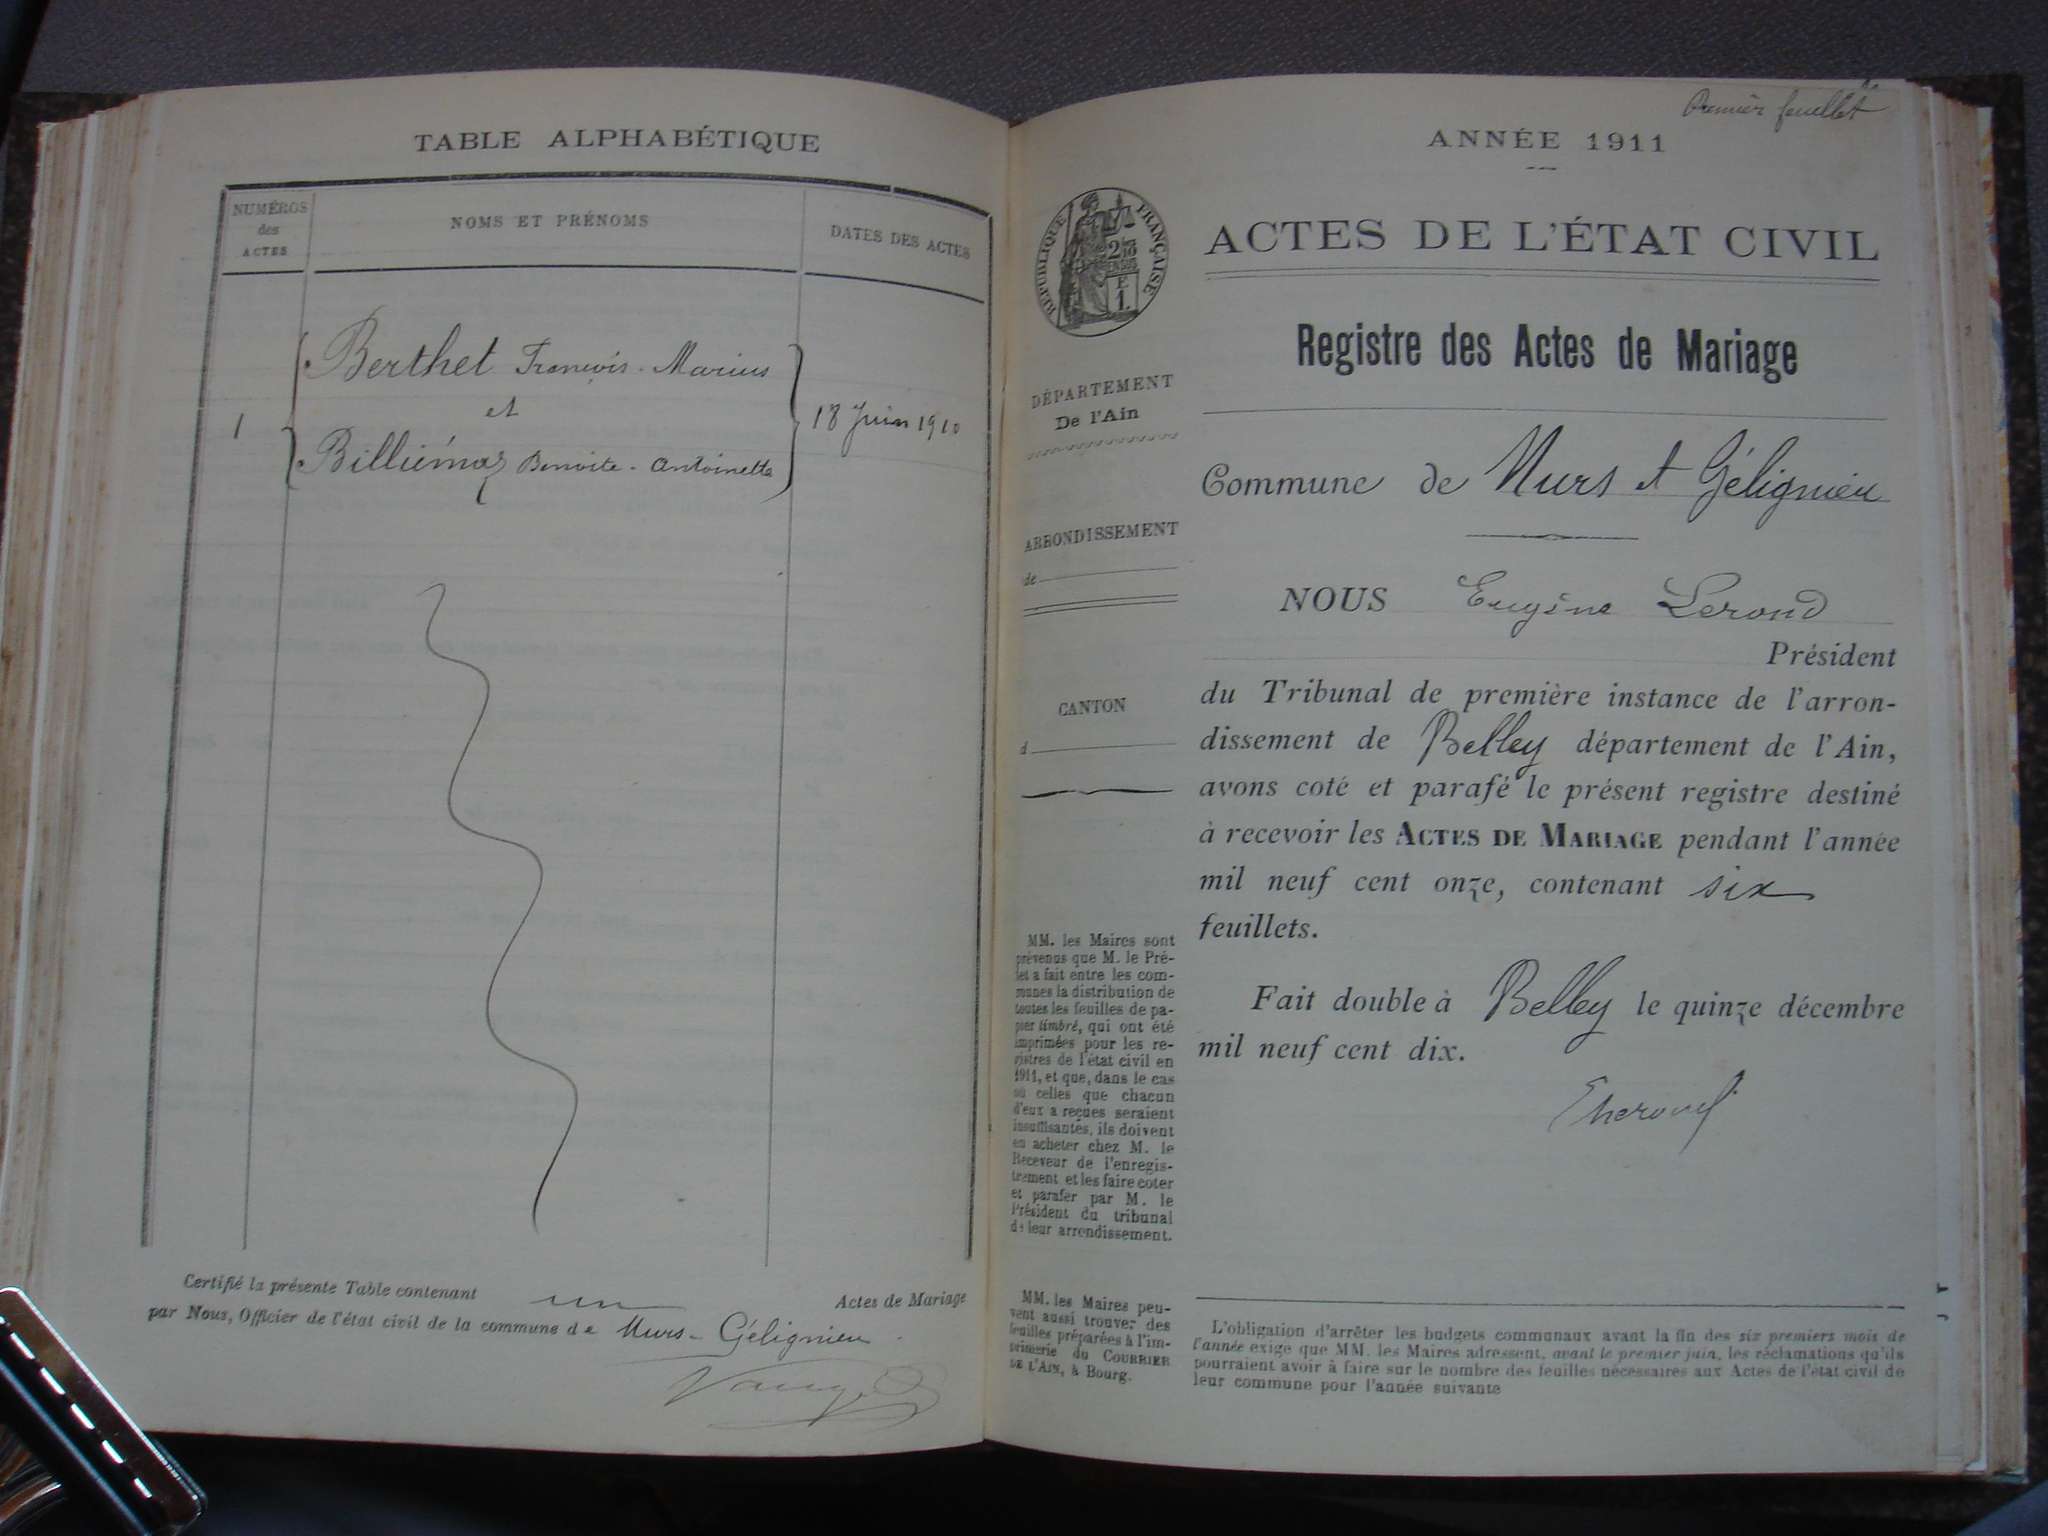 TABLE ALPHABÉTIQUE
NUMÉROS
des
ACTES
NOMS ET PRÉNOMS
DATES DES ACTES
1
Berthet François-Marius
et
Billiémaz Benoite-Antoinette
18 Juin 1910
Certifié la présente Table contenant un Actes de Mariage
par Nous, Officier de l'état civil de la commune de Murs-Gélignieu
Premier feuillet
ANNÉE 1911
RÉPUBLIQUE FRANÇAISE
ACTES DE L'ÉTAT CIVIL
Registre des Actes de Mariage
DÉPARTEMENT
De l'Ain
Commune de Murs et Gélignieu
ARRONDISSEMENT
de
NOUS Eugène Lerond
Président
CANTON
d
du Tribunal de première instance de l'arron-
dissement de Belley département de l'Ain,
avons coté et parafé le présent registre destiné
à recevoir les ACTES DE MARIAGE pendant l'année
mil neuf cent onze, contenant six
feuillets.
Fait double à Belley le quinze décembre
mil neuf cent dix.
MM. les Maires sont
prévenus que M. le Pré-
fet a fait entre les com-
munes la distribution de
toutes les feuilles de pa-
pier timbré, qui ont été
imprimées pour les re-
gistres de l'état civil en
1911, et que, dans le cas
où celles que chacun
d'eux a reçues seraient
insuffisantes, ils doivent
en acheter chez M. le
Receveur de l'enregis-
trement et les faire coter
et parafer par M. le
Président du tribunal
de leur arrondissement.
MM. les Maires peu-
vent aussi trouver des
feuilles préparées à l'im-
primerie du COURRIER
DE L'AIN, à Bourg.
L'obligation d'arrêter les budgets communaux avant la fin des six premiers mois de
l'année exige que MM. les Maires adressent, avant le premier juin, les réclamations qu'ils
pourraient avoir à faire sur le nombre des feuilles nécessaires aux Actes de l'état civil de
leur commune pour l'année suivante